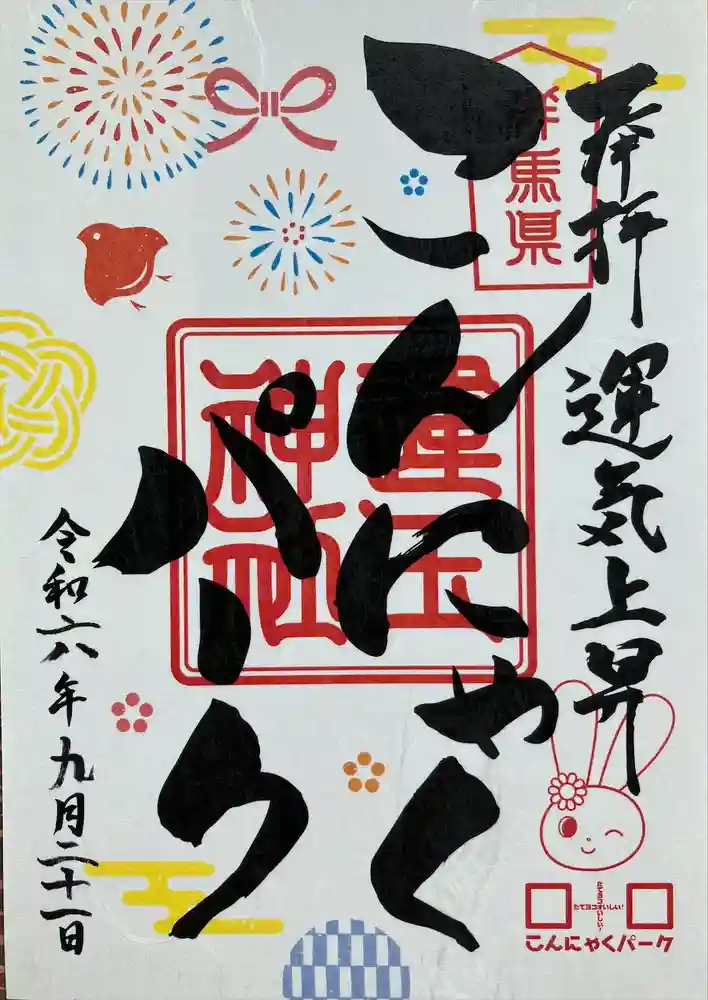 奉拝
運気上昇
群馬県
こんにゃく
パーク
蓮玉
神社
令和六年九月二十一日
たてヨコおいしい!
こんにゃくパーク